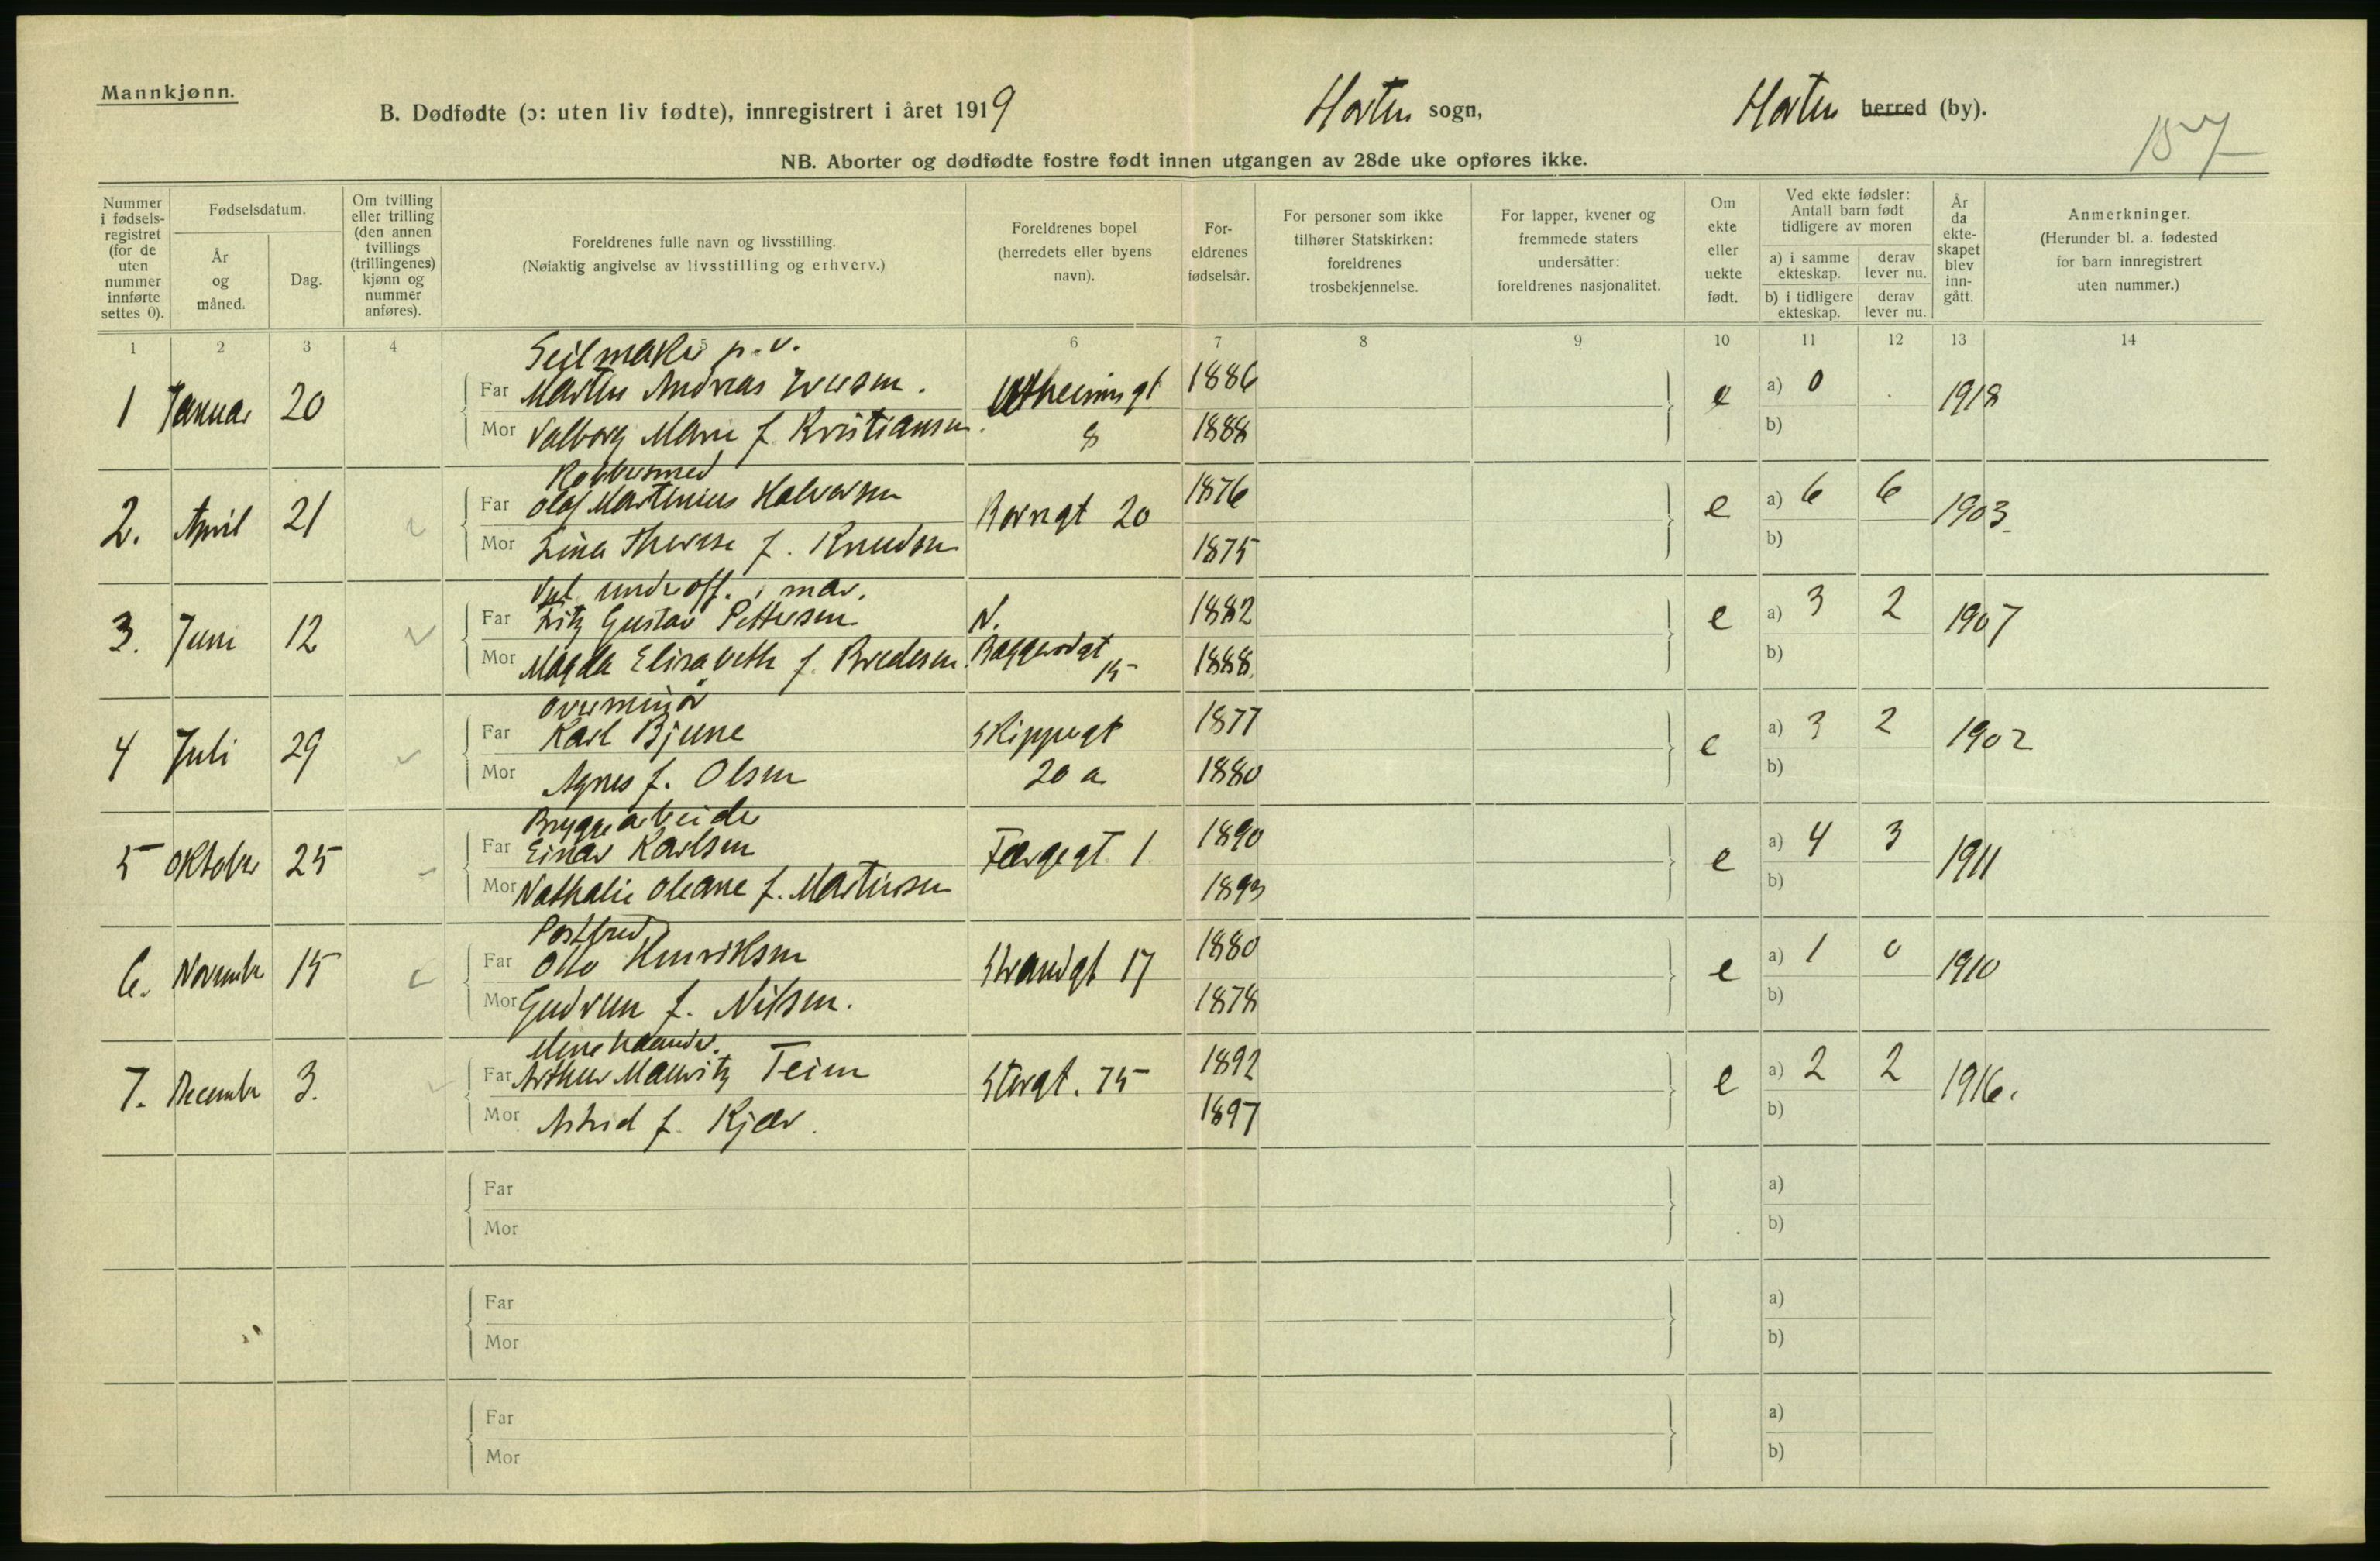 Mannkjønn.
B. Dødfødte (ɔ: uten liv fødte), innregistrert i året 1919 Horten sogn, Horten herred (by).
157
NB. Aborter og dødfødte fostre født innen utgangen av 28de uke opføres ikke.
Nummer i fødsels-registret (for de uten nummer innførte settes 0).
Fødselsdatum.
År og måned.
Dag.
Om tvilling eller trilling (den annen tvillings (trillingenes) kjønn og nummer anføres).
Foreldrenes fulle navn og livsstilling.
(Nøiaktig angivelse av livsstilling og erhverv.)
Foreldrenes bopel (herredets eller byens navn).
For-eldrenes fødselsår.
For personer som ikke tilhører Statskirken: foreldrenes trosbekjennelse.
For lapper, kvener og fremmede staters undersåtter: foreldrenes nasjonalitet.
Om ekte eller uekte født.
Ved ekte fødsler: Antall barn født tidligere av moren
a) i samme ekteskap.
derav lever nu.
b) i tidligere ekteskap.
derav lever nu.
År da ekte-skapet blev inn-gått.
Anmerkninger.
(Herunder bl. a. fødested for barn innregistrert uten nummer.)
1 2 3 4 5 6 7 8 9 10 11 12 13 14
Seilmaker p.v.
1 Januar 20 Far Martin Andreas Iversen. 1886 e a) 0 1918
Mor Valborg Marie f. Kristiansen. 8 1888 b)
Kobbersmed
2. April 21 Far Olaf Martinius Halvorsen Borregt 20 1876 e a) 6 6 1903
Mor Lina Therese f. Knudsen 1875 b)
underoff. i mar.
3. Juni 12 Far Fritz Gustav Pettersen N. 1882 e a) 3 2 1907
Mor Magda Elisabeth f. Bredesen. Baggerødgt 15 1888. b)
Overminør
4 Juli 29 Far Karl Bjune Skippergt 1877 e a) 3 2 1902
Mor Agnes f. Olsen 20 a 1880 b)
Bryggearbeider
5 Oktober 25 Far Einar Karlsen Færgegt. 1 1890 e a) 4 3 1911
Mor Nathalie Oleane f. Martinsen 1893 b)
Postbud
6. November 15 Far Otto Henriksen Strandgt 17 1880 e a) 1 0 1910
Mor Gudrun f. Nilsen. 1878 b)
7. December 3. Far Arthur Mauritz Teim Storgt. 75 1892 e a) 2 2 1916.
Mor Astrid f. Kjær. 1897 b)
Far a)
Mor b)
Far a)
Mor b)
Far a)
Mor b)